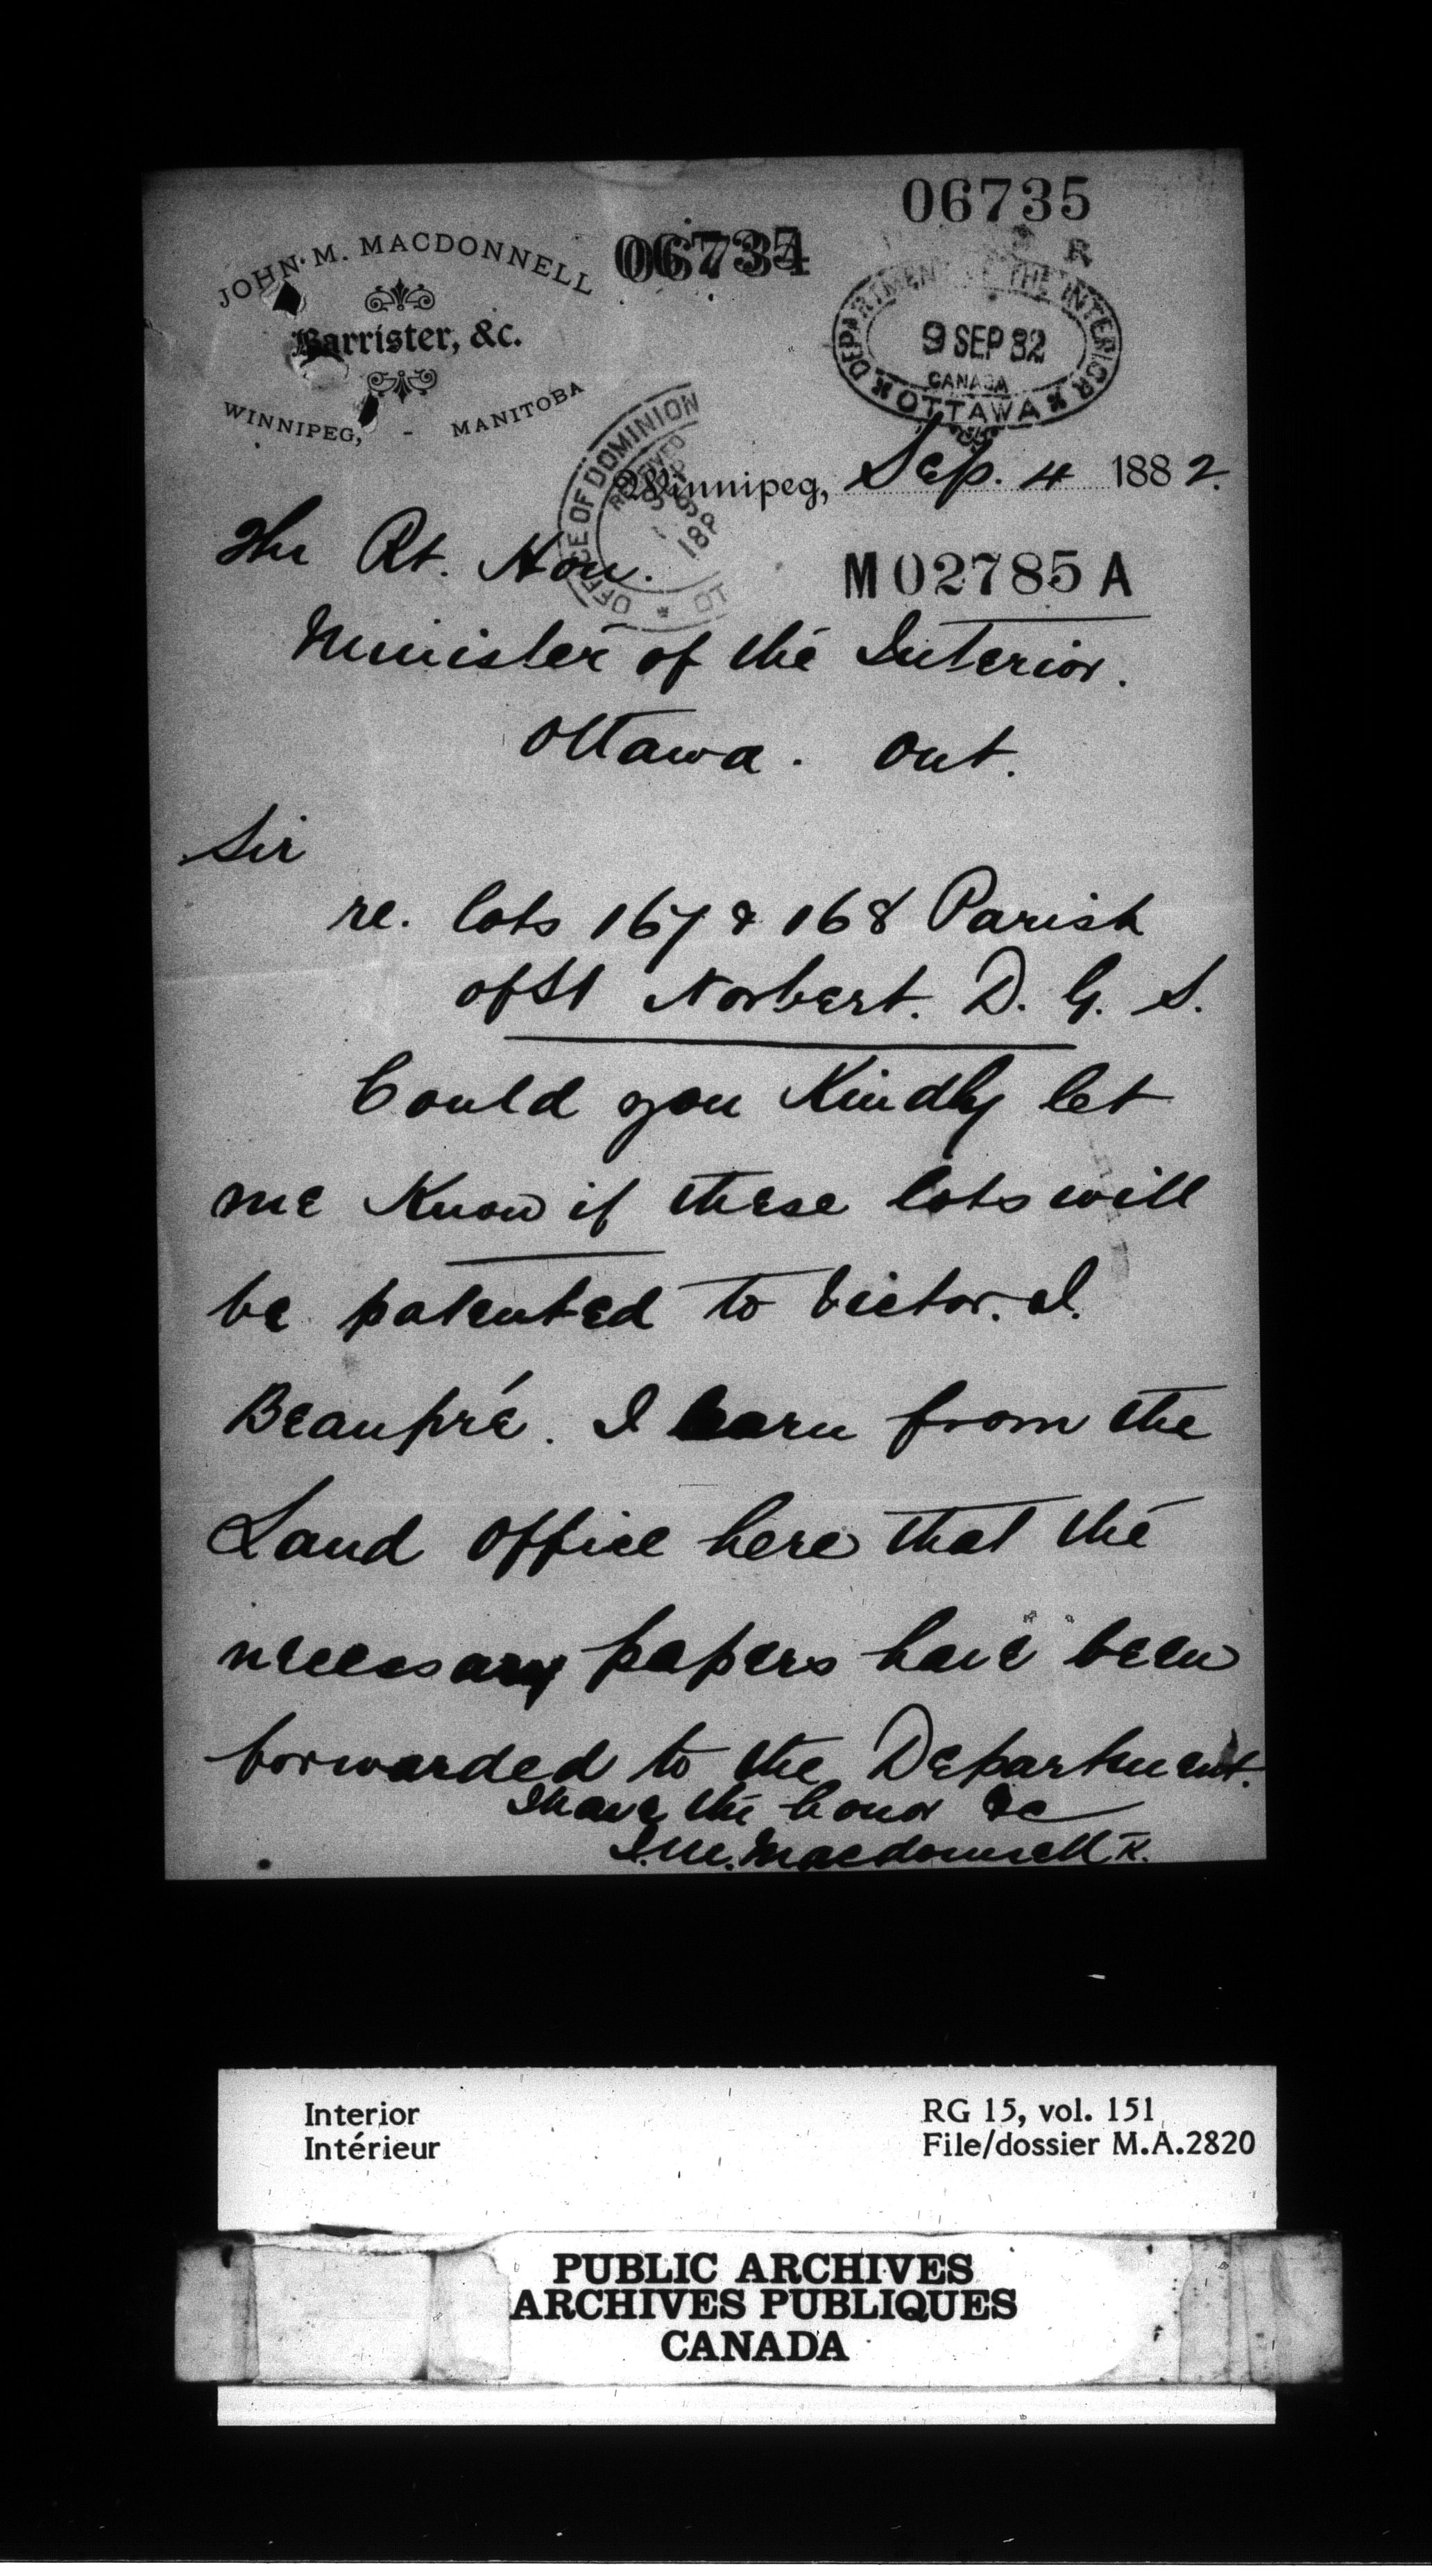 06735
06734
JOHN M. MACDONNELL
Barrister, &c.
WINNIPEG, - MANITOBA
DEPARTMENT OF THE INTERIOR
9 SEP 82
CANADA
OTTAWA
OFFICE OF DOMINION
RECEIVED
Winnipeg, Sep. 4 1882.
The Rt. Hon.
M02785A
Minister of the Interior.
Ottawa. Ont.
Sir
re. lots 167 & 168 Parish
of St Norbert. D. G. S.
Could you Kindly let
me Know if these lots will
be patented to Victor. J.
Beaupré. I learn from the
Land Office here that the
necessary papers have been
forwarded to the Department.
I have the honor &c
J. M. Macdonnell
Interior
Intérieur
RG 15, vol. 151
File/dossier M.A.2820
PUBLIC ARCHIVES
ARCHIVES PUBLIQUES
CANADA